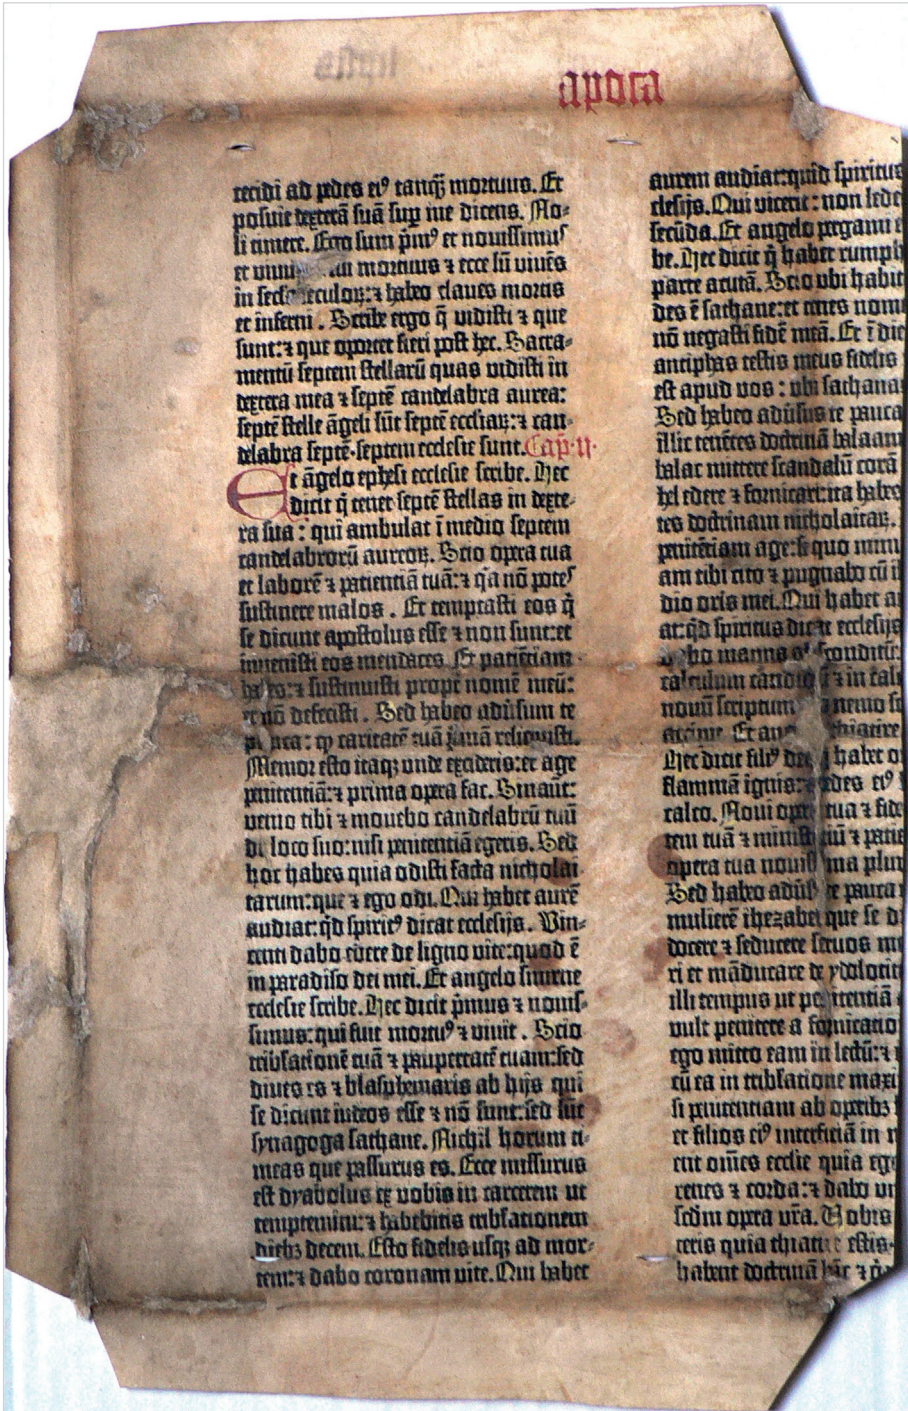 apoca
cecidi ad pedes ei⁹ tanq̃ mortuus. Et
posuit dexterã suã sup me dicens. No-
li timere. Ego sum p̃m⁹ et nouissimus
et mortuus ⁊ ecce sũ viuẽs
in ⁊ habeo claues mortis
et inferni. Scribe ergo q̃ vidisti ⁊ que
sunt: ⁊ que oportet fieri post hec. Sacra-
mentũ septem stellarũ quas vidisti in
dextera mea ⁊ septẽ candelabra aurea:
septẽ stelle ãgeli sũt septẽ eccl'iaꝝ: ⁊ can-
delabra septẽ·septem ecclesie sunt. Cap̃·ii·
Et ãgelo ephesi ecclesie scribe. Hec
dicit q̃ tenet septẽ stellas in dexte-
ra sua: qui ambulat ĩ medio septem
candelabrorũ aureoꝝ. Scio opera tua
et laborẽ ⁊ patientiã tuã: ⁊ q̃a nõ potes
sustinere malos. Et temptasti eos q̃
se dicunt apostolus esse ⁊ non sunt: et
inuenisti eos mendaces. Et patiẽtiam
habes: ⁊ sustinuisti propt̃ nomẽ meũ:
nõ defecisti. Sed habeo adũsum te
pauca: ꝙ caritatẽ tuã p̃mã reliquisti.
Memor esto itaqꝫ unde excideris: et age
penitentiã: ⁊ prima opera fac. Sinaũt:
venio tibi ⁊ mouebo candelabrũ tuũ
de loco suo: nisi penitentiã egeris. Sed
hoc habes quia odisti facta nicholai-
tarum: que ⁊ ego odi. Qui habet aurẽ
audiat: q̃d spirit⁹ dicat ecclesijs. Vin-
centi dabo edere de ligno vite: quod ẽ
in paradiso dei mei. Et angelo smirne
ecclesie scribe. Hec dicit p̃mus ⁊ nouis-
simus: qui fuit mortu⁹ ⁊ viuit. Scio
tribl'ationẽ tuã ⁊ paupertatẽ tuam: sed
diues es ⁊ blasphemaris ab hijs qui
se dicunt iudeos esse ⁊ nõ sunt: sed sũt
synagoga sathane. Nichil horum ti-
meas que passurus es. Ecce missurus
est dyabolus ex vobis in carcerem ut
temptemini: ⁊ habebitis tribl'ationem
diebꝫ decem. Esto fidelis usqꝫ ad mor-
tem: ⁊ dabo coronam vite. Qui habet
aurem audiat: quid spiritus
clesijs. Qui vicerit: non lede
secũda. Et angelo pergami e
be. Hec dicit q̃ habet rumph
parte acutã. Scio ubi habit
des ẽ sathane: et tenes nome
nõ negasti fidẽ meã. Et ĩ die
antiphas testis meus fidelis
est apud vos: ubi sathana
Sed habeo adũsus te pauca
illic tenẽtes doctrinã balaam
balac mittere scandalũ corã
hel edere ⁊ fornicari: ita habeo
tes doctrinam nicholaitaꝝ.
penitẽtiam age: si quo minu
am tibi cito ⁊ pugnabo cũ il
dio oris mei. Qui habet au
at: q̃d spiritus dicat ecclesijs
dabo manna absconditũ:
calculum candidũ ⁊ in calc
nouũ scriptum nemo sc
accipit. Et thiatire
Hec dicit fili⁹ dei habet o
flammã ignis: ⁊ pedes ei⁹
calco. Noui opera tua ⁊ fide
tem tuã ⁊ ministeriũ ⁊ patie
opera tua nouissima plur
Sed habeo adũs te pauca
mulierẽ ihezabel que se di
docere ⁊ seducere seruos me
ri et mãducare de ydolotit
illi tempus ut penitentiã
vult penitere a fornicatio
ego mitto eam in lectũ: ⁊
cũ ea in tribl'atione maxi
si penitentiam ab operibꝫ
et filios ei⁹ interficiã in m
ent om̃es eccl'ie quia ego
renes ⁊ corda: ⁊ dabo vn
scd̃m opera vr̃a. Vobis
ceteris quia thiatire estis·
habent doctrinã hãc ⁊ q̃